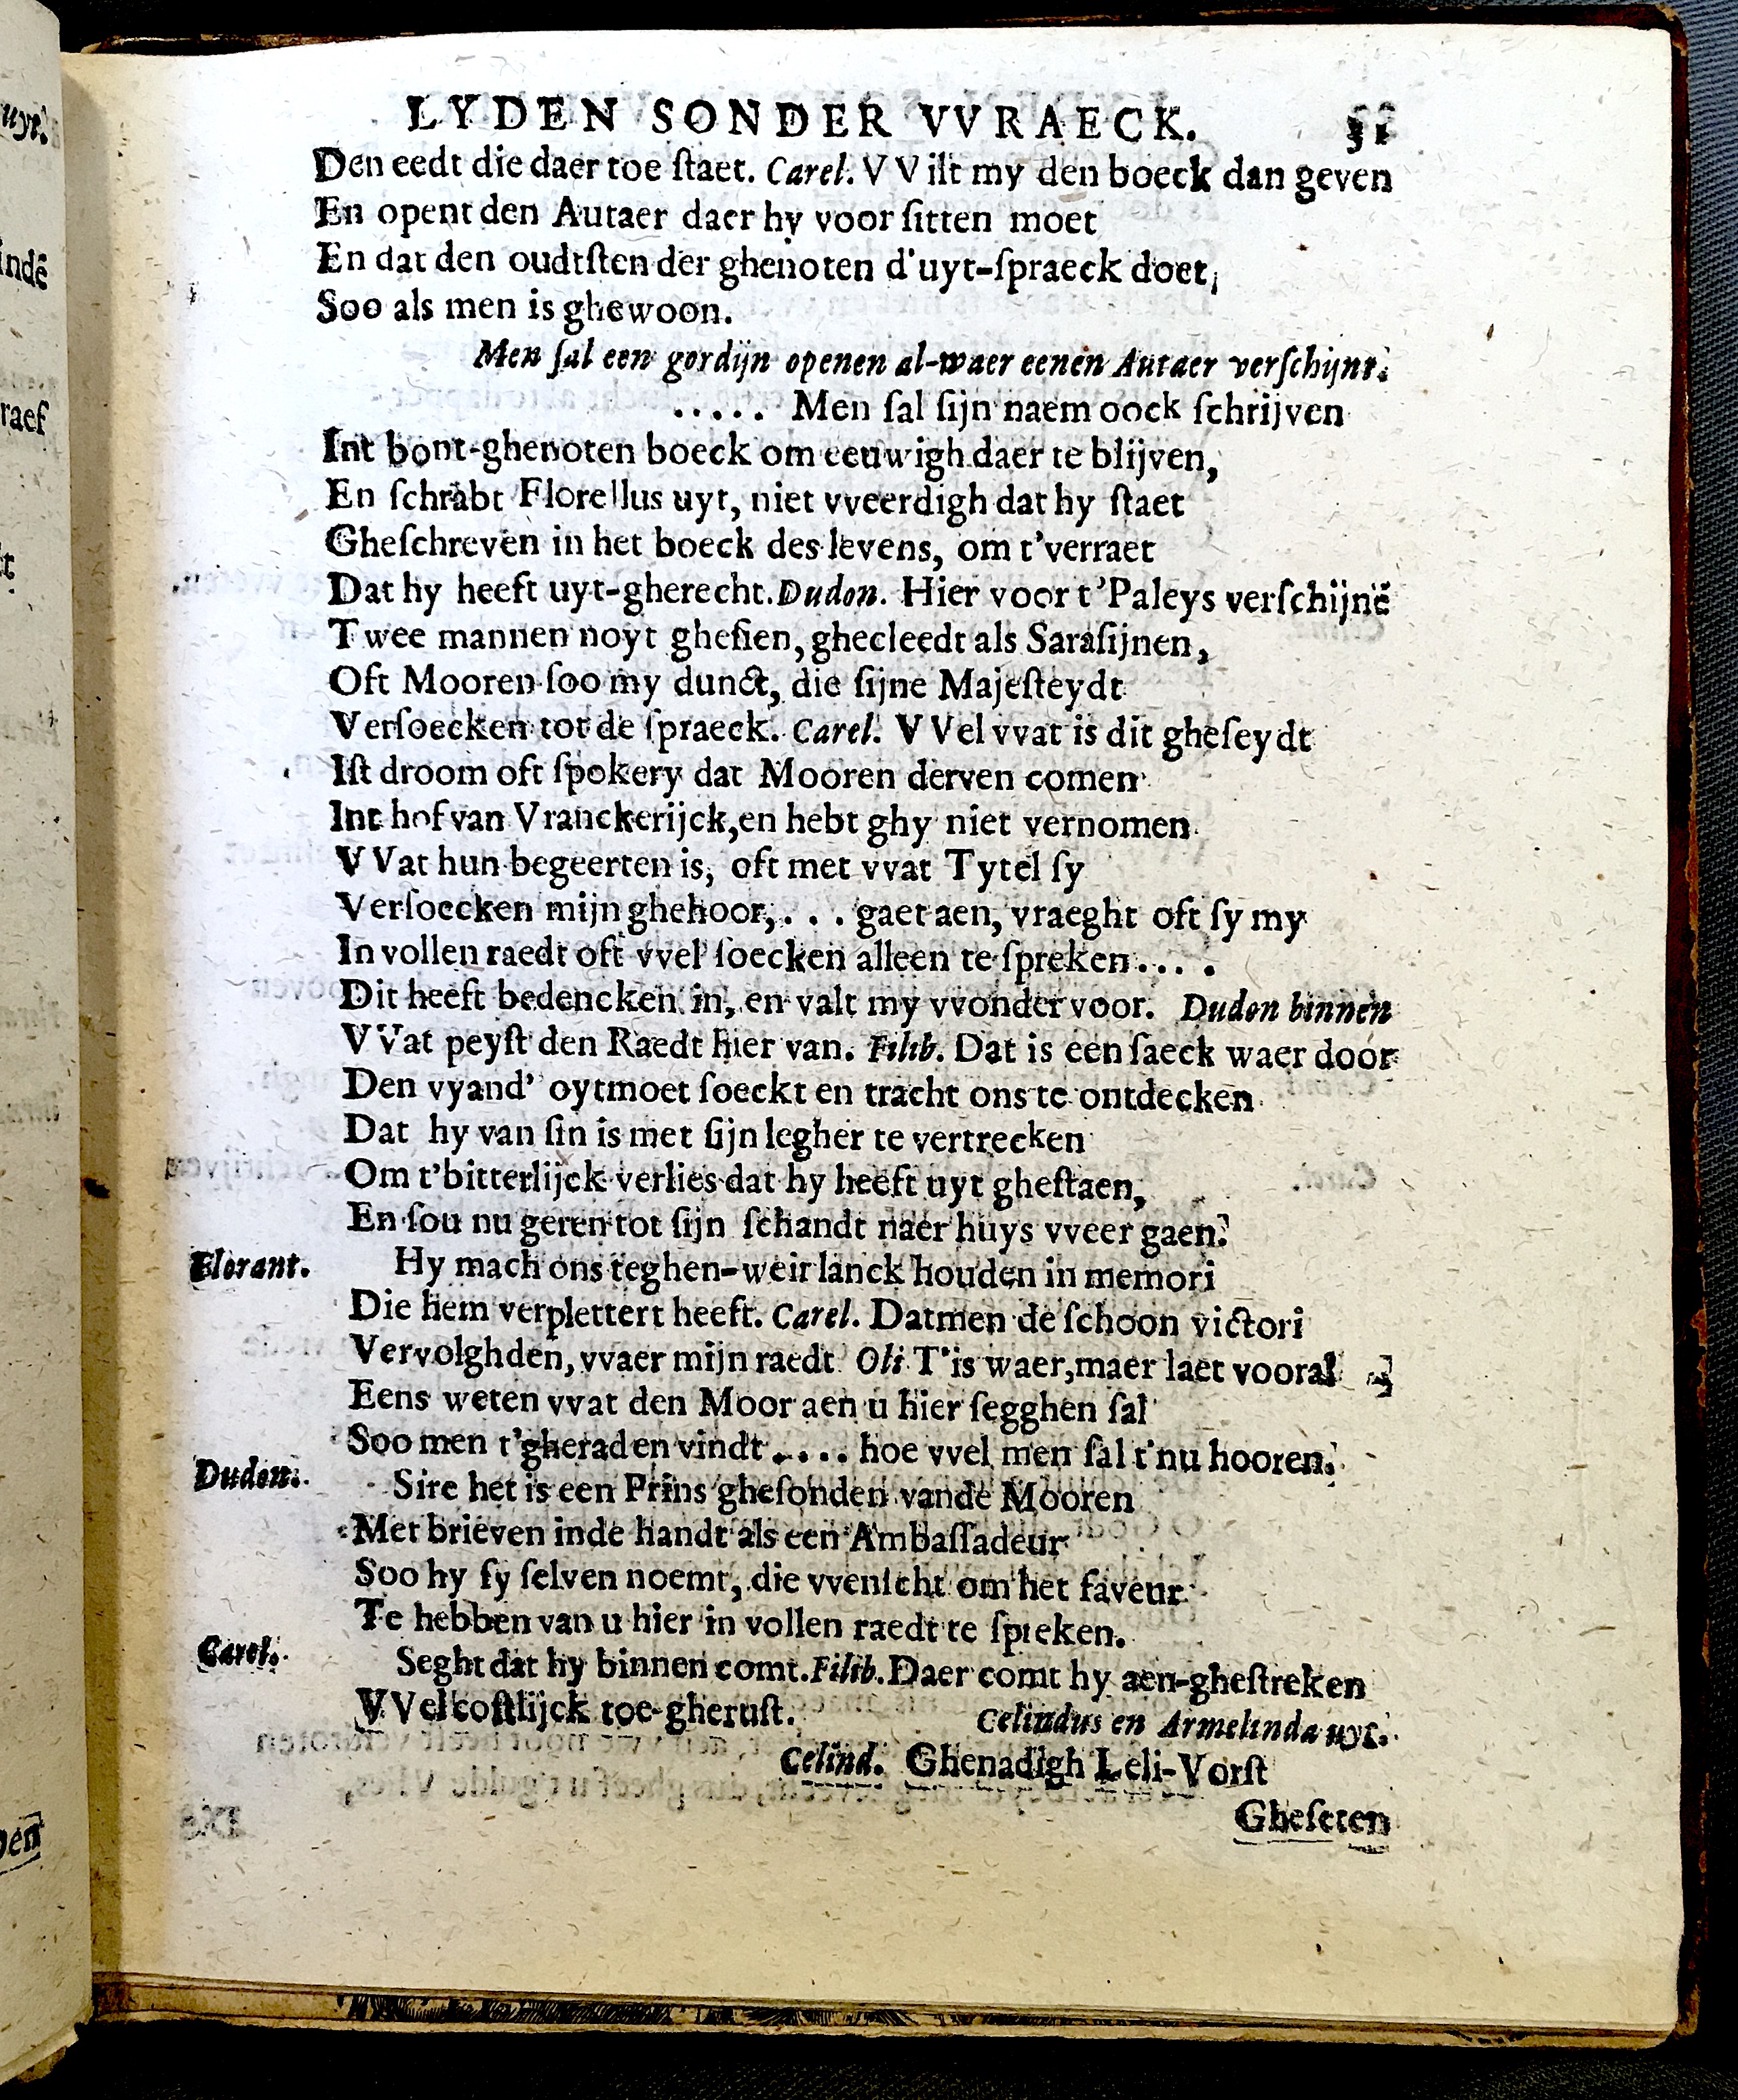 LYDEN SONDER VVRAECK. 51
Den eedt die daer toe ſtaet. Carel. VVilt my den boeck dan geven
En opent den Autaer daer hy voor ſitten moet
En dat den oudtſten der ghenoten d'uyt-ſpraeck doet,
Soo als men is ghewoon.
Men ſal een gordijn openen al-waer eenen Autaer verſchijnt.
..... Men ſal ſijn naem oock ſchrijven
Int bont-ghenoten boeck om eeuwigh daer te blijven,
En ſchrabt Florellus uyt, niet vveerdigh dat hy ſtaet
Gheſchreven in het boeck des levens, om t'verraet
Dat hy heeft uyt-gherecht. Dudon. Hier voor t'Paleys verſchijnē
Twee mannen noyt gheſien, ghecleedt als Saraſijnen,
Oft Mooren ſoo my dunct, die ſijne Majeſteydt
Verſoecken tot de ſpraeck. Carel. VVel vvat is dit gheſeydt
Iſt droom oft ſpokery dat Mooren derven comen
Int hof van Vranckerijck, en hebt ghy niet vernomen
VVat hun begeerten is, oft met vvat Tytel ſy
Verſoecken mijn ghehoor, . . . gaet aen, vraeght oft ſy my
In vollen raedt oft vvel ſoecken alleen te ſpreken....
Dit heeft bedencken in, en valt my vvonder voor. Dudon binnen
VVat peyſt den Raedt hier van. Filib. Dat is een ſaeck waer door
Den vyand' oytmoet ſoeckt en tracht ons te ontdecken
Dat hy van ſin is met ſijn legher te vertrecken
Om t'bitterlijck verlies dat hy heeft uyt gheſtaen,
En ſou nu geren tot ſijn ſchandt naer huys vveer gaen.
Florant. Hy mach ons teghen-weir lanck houden in memori
Die hem verplettert heeft. Carel. Datmen de ſchoon victori
Vervolghden, vvaer mijn raedt. Oli. T'is waer, maer laet vooral
Eens weten vvat den Moor aen u hier ſegghen ſal
Soo men t'gheraden vindt.... hoe vvel men ſal t'nu hooren.
Dudon. Sire het is een Prins gheſonden vande Mooren
Met brieven inde handt als een Ambaſſadeur
Soo hy ſy ſelven noemt, die vvenſcht om het faveur
Te hebben van u hier in vollen raedt te ſpreken.
Carel. Seght dat hy binnen comt. Filib. Daer comt hy aen-gheſtreken
VVel coſtlijck toe-gheruſt.
Celindus en Armelinda uyt.
Celind. Ghenadigh Leli-Vorſt
Gheſeten